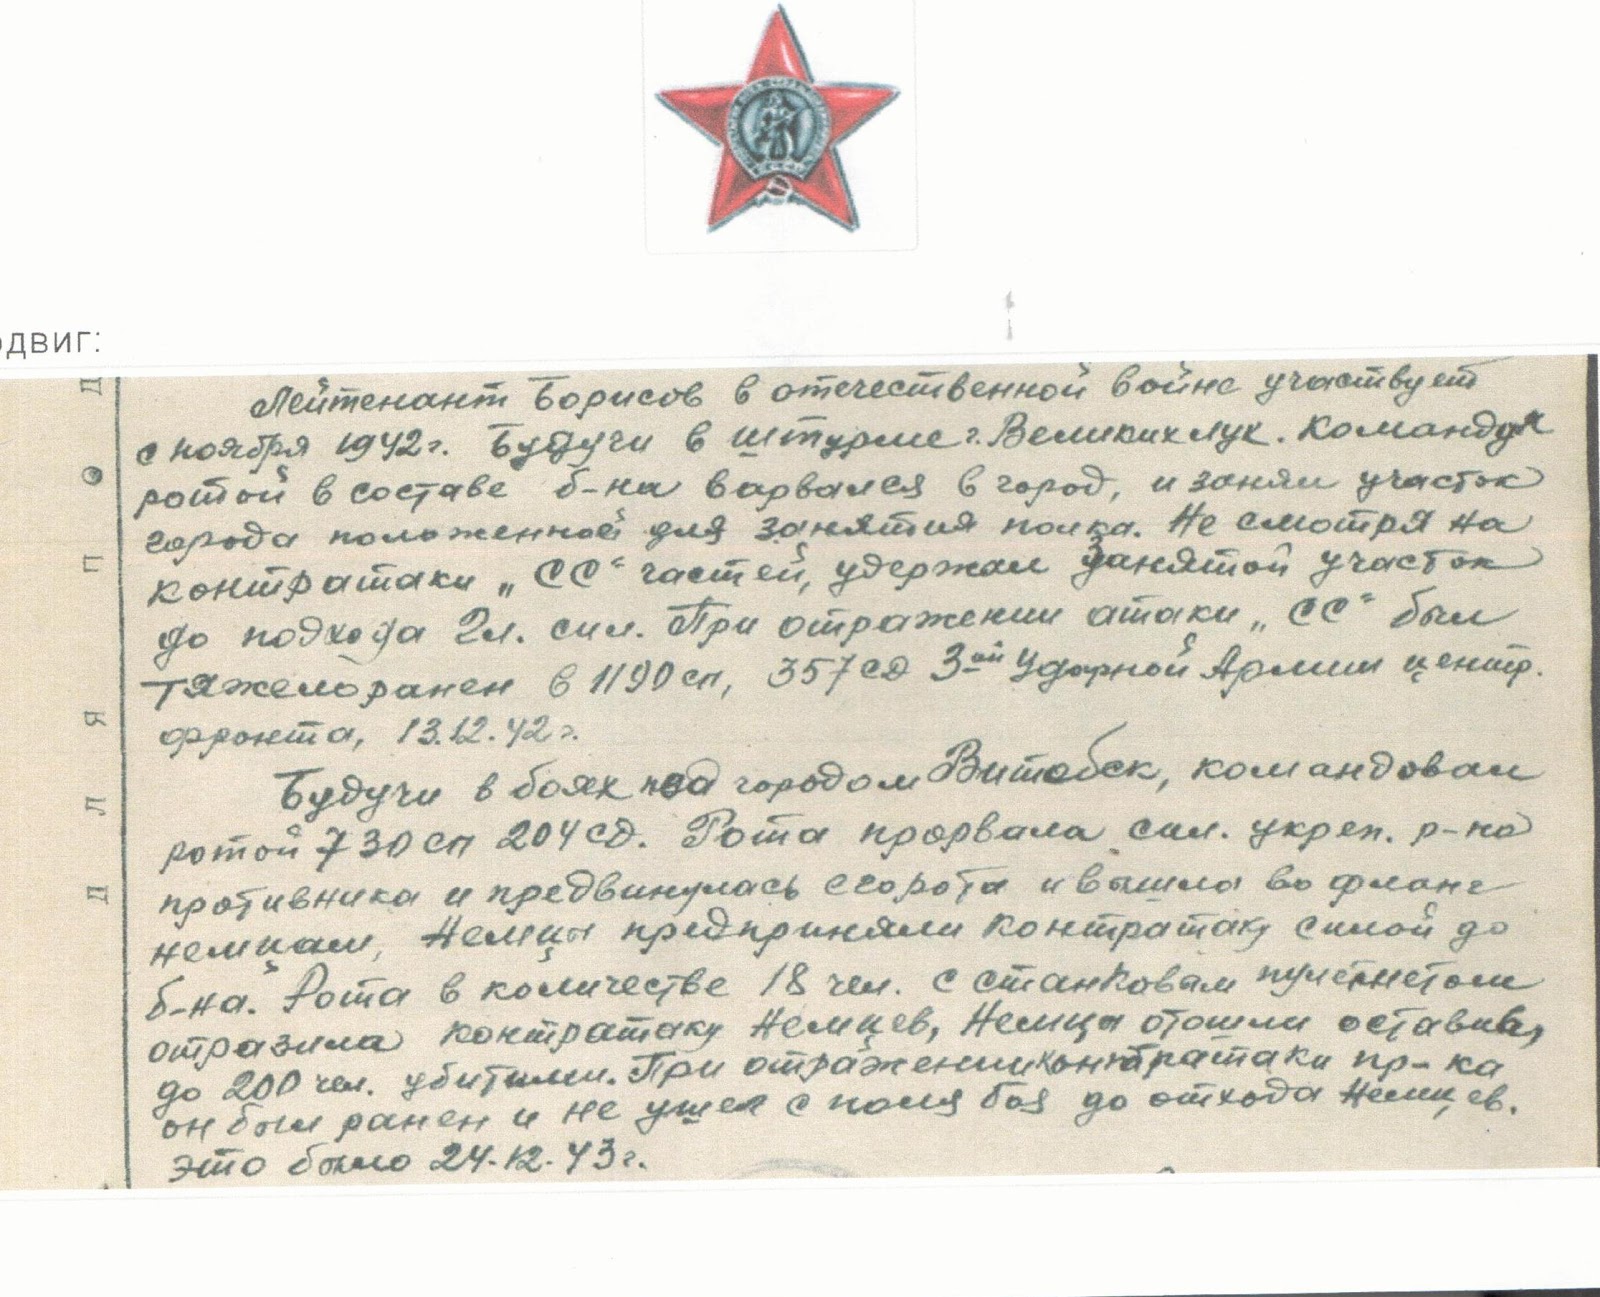 одвиг:
ДЛЯ ПОД
Лейтенант Борисов в отечественной войне участвует
с ноября 1942г. Будучи в штурме г. Великих лук. Командуя
ротой в составе б-на варвался в город, и занял участок
города положенной для занятия полка. Не смотря на
контратаки „СС“ частей, удержал занятой участок
до подхода гл. сил. При отражении атаки „СС“ был
тяжело ранен в 1190 сп, 357 сд 3-ой Ударной Армии центр.
фронта, 13.12.42г.
Будучи в боях под городом Витебск, командовал
ротой 730 сп 204 сд. Рота прорвала сил. укреп. р-на
противника и предвинулась сгорота и вышла во фланг
немцам, Немцы предприняли контратаку силой до
б-на. Рота в количестве 18 чел. с станковым пулеметом
отразила контратаку немцев, Немцы отошли оставив,
до 200 чел. убитыми. При отражении контратаки пр-ка
он был ранен и не ушел с поля боя до отхода немцев.
это было 24.12.43г.